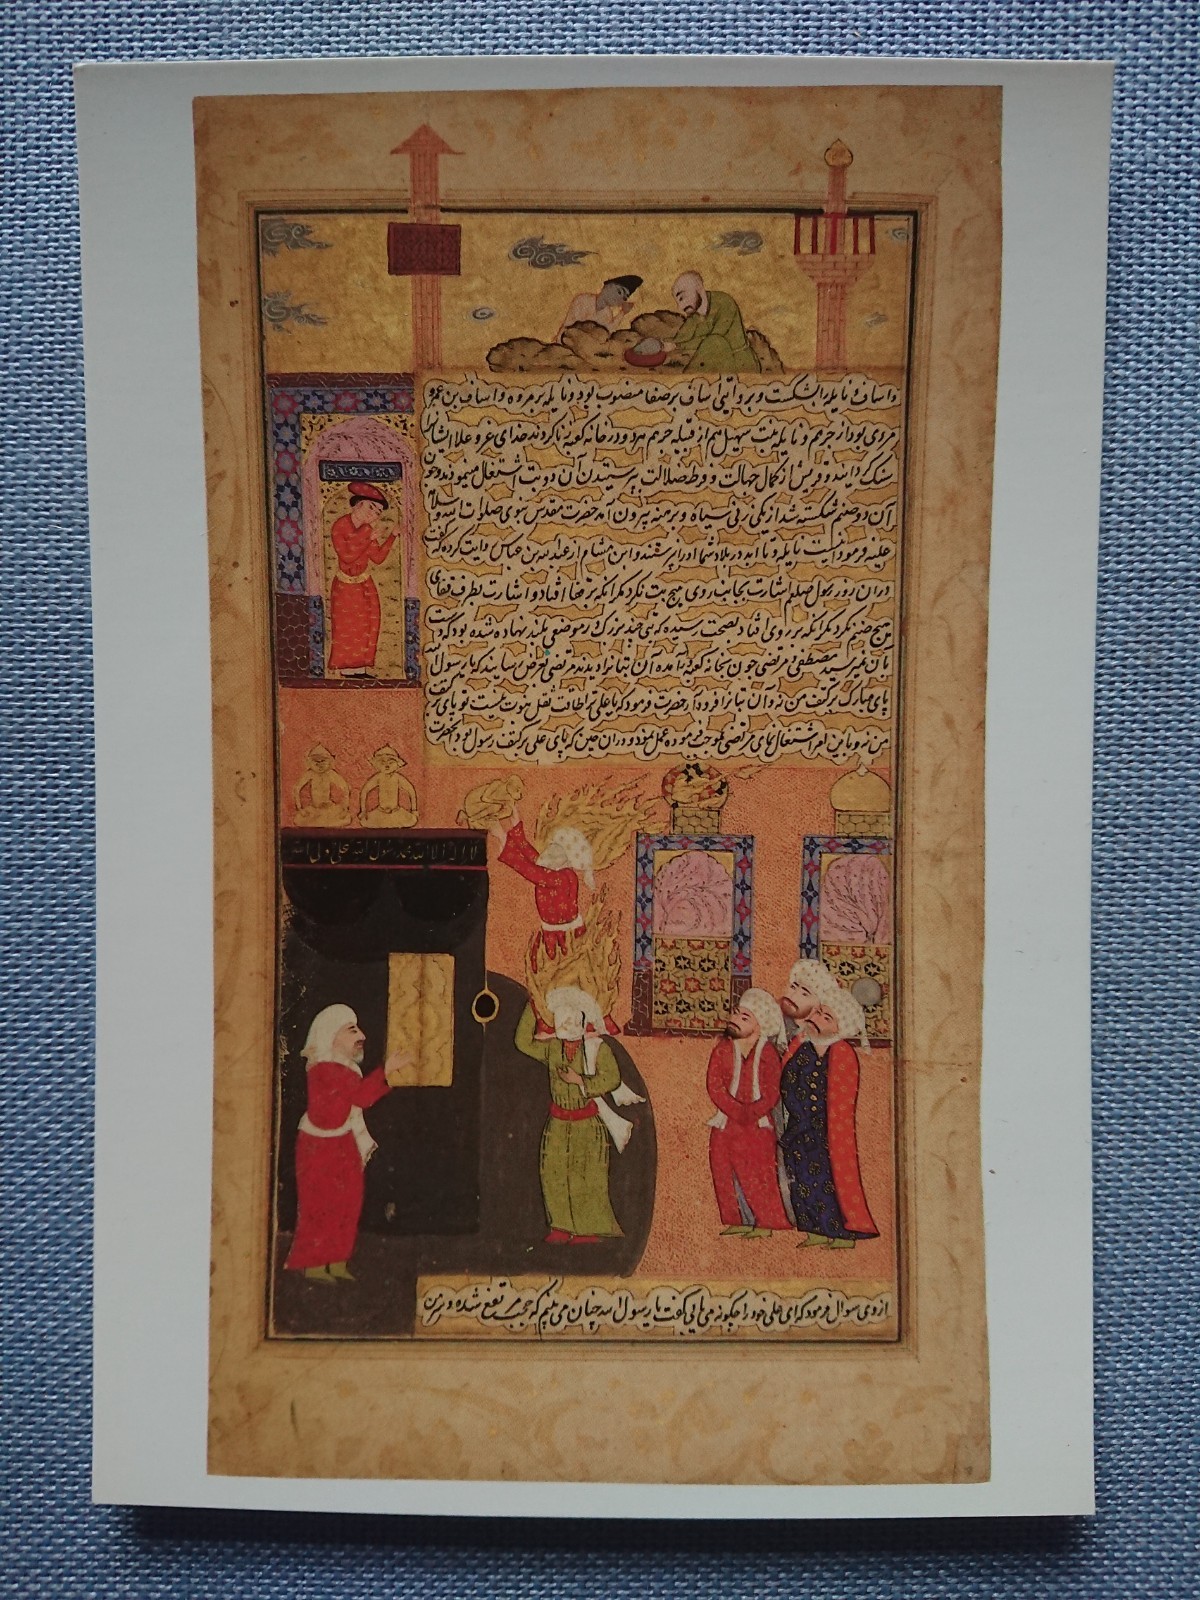 و اساف و نایله را بشکست و بروایتی اساف بر صفا منصوب بود و نایله بر مروه و اساف بن عمرو
مردی بود از جرهم و نایله بنت سهیل هم از قبیله جرهم هردو در خانه کعبه زنا کردند خدای عز و علا ایشانرا
سنک کردانید و قریش از کمال جهالت و فرط ضلالت بپرستیدن آن دو بت اشتغال مینمودند و چون
آن دو صنم شکسته شد از یکی زنی سیاه و برهنه بیرون آمد حضرت مقدس نبوی صلوات الله و سلامه
علیه فرمود اینست نایله و تا ابد در بلاد شما او را نپرستند و ابن هشام از عبدالله بن عباس روایت کرده که گفت
در ان روز رسول صلعم اشارت بجانب روی هیچ بت نکرد مکر انکه بر قفا افتاد و اشارت بطرف قفای
هیچ صنم نکرد مکر انکه بر روی افتاد بصحت رسیده که بتی چند بزرک در موضعی بلند نهاده شده بود که دست
بان نمیرسید مصطفی و مرتضی چون بخانه کعبه در آمده آن بتانرا دیدند مرتضی بعرض رسانید که یا رسول الله
پای مبارک بر کتف من نه و آن بتانرا فرود آر حضرت فرمود که یا علی ترا طاقت ثقل نبوت نیست تو پای بر کتف
من نه و باین امر اشتغال نمای مرتضی بموجب فرموده عمل نمود و در ان حین که پای علی بر کتف رسول بود آنحضرت
لا اله الا الله محمد رسول الله علی ولی الله
از وی سوال فرمود که ای علی خود را چکونه می یابی کفت یا رسول الله چنان می بینم که حجب مرتفع شده و سر من